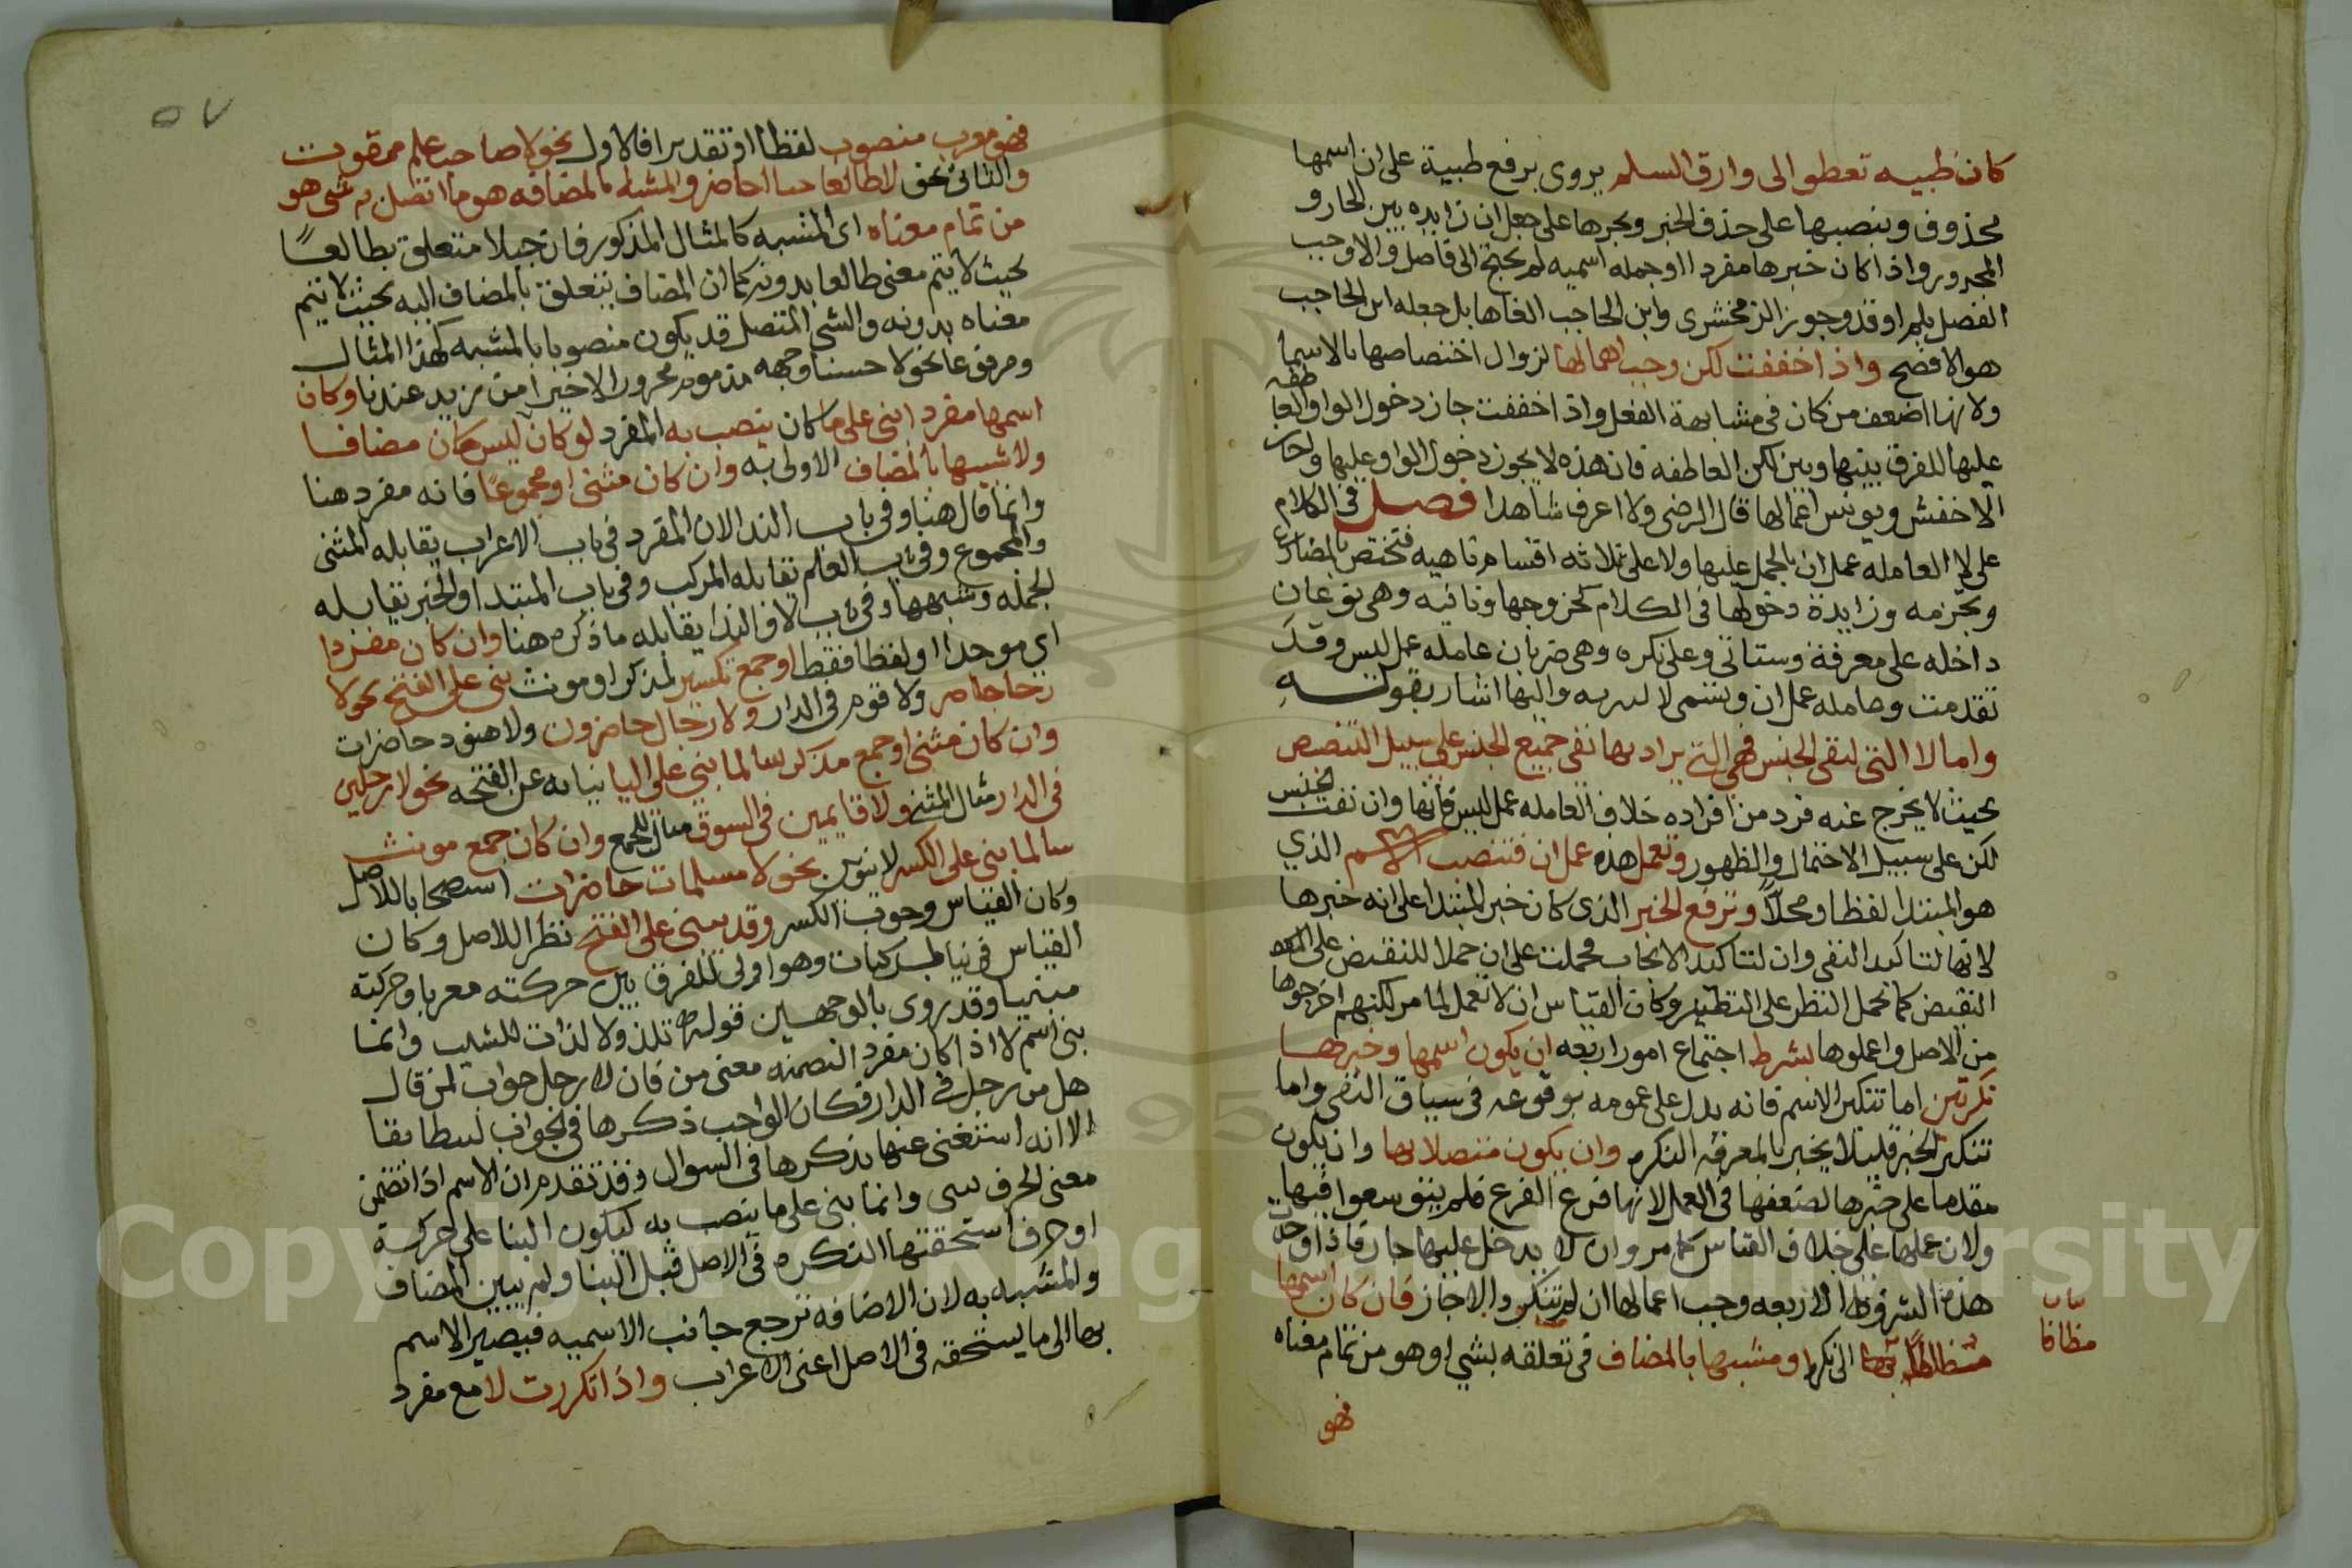 كان ظبيه تعطو الى وارق السلم يروى برفع ظبية على ان اسمها
محذوف وبنصبها على حذف الخبر وبجرها على جعل ان زايده بين الجار و
المجرور واذا كان خبرها مفردا او جمله اسميه لم يحتج الى فاصل والا وجب
الفصل بلم او قد وجوز الزمخشرى وابن الحاجب الغاها بل جعله ابن الحاجب
هو الافصح واذا خففت لكن وجب اهمالها لزوال اختصاصها بالاسما
ولانها اضعف من كان فى مشابهة الفعل واذا خففت جاز دخول الواو العاطفه
عليها للفرق بينها وبين لكن العاطفه فان هذه لا يجوز دخول الواو عليها واجاز
الاخفش ويونس اعمالها قال الرضى ولا اعرف شاهدا فصل فى الكلام
على لا العامله عمل ان بالحمل عليها ولا على ثلاثه اقسام ناهيه فتختص بالمضارع
وتجزمه وزايدة دخولها فى الكلام كخروجها ونافيه وهى نوعان
داخله على معرفة وستاتى وعلى نكره وهى ضربان عامله عمل ليس وقد
تقدمت وعامله عمل ان وتسمى لا التبريه واليها اشار بقوله
واما لا التى لنفى الجنس فهى التى يراد بها نفى جميع الجنس على سبيل التنصيص
بحيث لا يخرج عنه فرد من افراده خلاف العامله عمل ليس فانها وان نفت الجنس
لكن على سبيل الاحتمال والظهور وتعمل هذه عمل ان فتنصب الاسم الذي
هو المبتدا لفظا ومحلًا وترفع الخبر الذى كان خبر المبتدا على انه خبرها
لانها لتاكيد النفى وان لتاكيد الايجاب فحملت على ان حملا للنقيض على
النقيض كما يحمل النظير على النظير وكان القياس ان لا تعمل لما مر لكنهم اخرجوها
من الاصل واعملوها بشرط اجتماع امور اربعه ان يكون اسمها وخبرها
نكرتين اما تنكير الاسم فانه يدل على عمومه بوقوعه فى سياق النفى واما
تنكير الخبر فليلا يخبر بالمعرفه النكره وان يكون متصلا بها وان يكون
مقدما على خبرها لضعفها فى العمل لانها فرع الفرع فلم يتوسعوا فيها
ولان عملها على خلاف القياس كما مر وان لا يدخل عليها جار فاذا وجدت
هذه الشروط الاربعه وجب اعمالها ان لم تتكرر والا جاز فان كان اسمها
الى نكره او مشبها بالمضاف فى تعلقه بشي او هو من تمام معناه
بيان
مظافا
فهو
٥٧
فهو معرب منصوب لفظا او تقديرا فالاول نحو لا صاحب علم ممقوت
والثانى نحو لا طالعا جبلا حاضر والمشبه بالمضاف هو ما اتصل به شى هو
من تمام معناه اى المشبه كالمثال المذكور فان جبلا متعلق بطالعًا
بحيث لا يتم معنى طالعا بدونه كما ان المضاف يتعلق بالمضاف اليه بحيث لا يتم
معناه بدونه والشى المتصل قد يكون منصوبا بالمشبه كهذا المثال
ومرفوعا نحو لا حسنا وجهه مذموم ومجرور الاخيرا من زيد عندنا وكان
اسمها مفردا بنى على ما كان ينصب به المفرد لو كان ليس كان مضافا
ولا شبيها بالمضاف الاولى به وان كان مثنى او مجموعًا فانه مفرد هنا
وانما قال هنا وفى باب الندا لان المفرد فى باب الاعراب يقابله المثنى
والمجموع وفى باب العلم يقابله المركب وفى باب المبتدا والخبر تقابله
الجمله وشبهها وفى باب لا والندا يقابله ما ذكره هنا وان كان مفردا
اي موحدا او لفظا فقط او جمع تكسير لمذكر او مونث بنى على الفتح نحو لا
رجل حاضر ولا قوم فى الدار ولا رجال حاضرون ولا هنود حاضرات
وان كان مثنى او جمع مذكر سالما بنى على اليا نيابه عن الفتحه نحو لا رجلين
فى الدار مثال المثنى ولا قايمين فى السوق مثال الجمع وان كان جمع مونث
سالما بنى على الكسر لا تنوين نحو لا مسلمات حاضرات استصحابا للاصل
وكان القياس وجوب الكسر وقد يبنى على الفتح نظرا للاصل وكان
القياس فى بنا المركبات وهو اولى للفرق بين حركته معربا وحركته
مبنيا وقد روى بالوجهين قوله تلذ ولا لذات للشيب وانما
بنى اسم لا اذا كان مفردا لتضمنه معنى من فان لا رجل جواب لمن قال
هل من رجل فى الدار فكان الواجب ذكرها فى الجواب ليطابقا
الا انه استغنى عنها بذكرها فى السوال وقد تقدم ان الاسم اذا تضمن
معنى الحرف بنى وانما بنى على ما ينصب به ليكون البنا على حركة
او حرف استحقتها النكره فى الاصل قبل البنا ولم يبن المضاف
والمشبه به لان الاضافه ترجح جانب الاسميه فيصير الاسم
بها الى ما يستحقه فى الاصل اعنى الاعراب واذا تكررت لا مع مفرد
Copyright © King Saud University